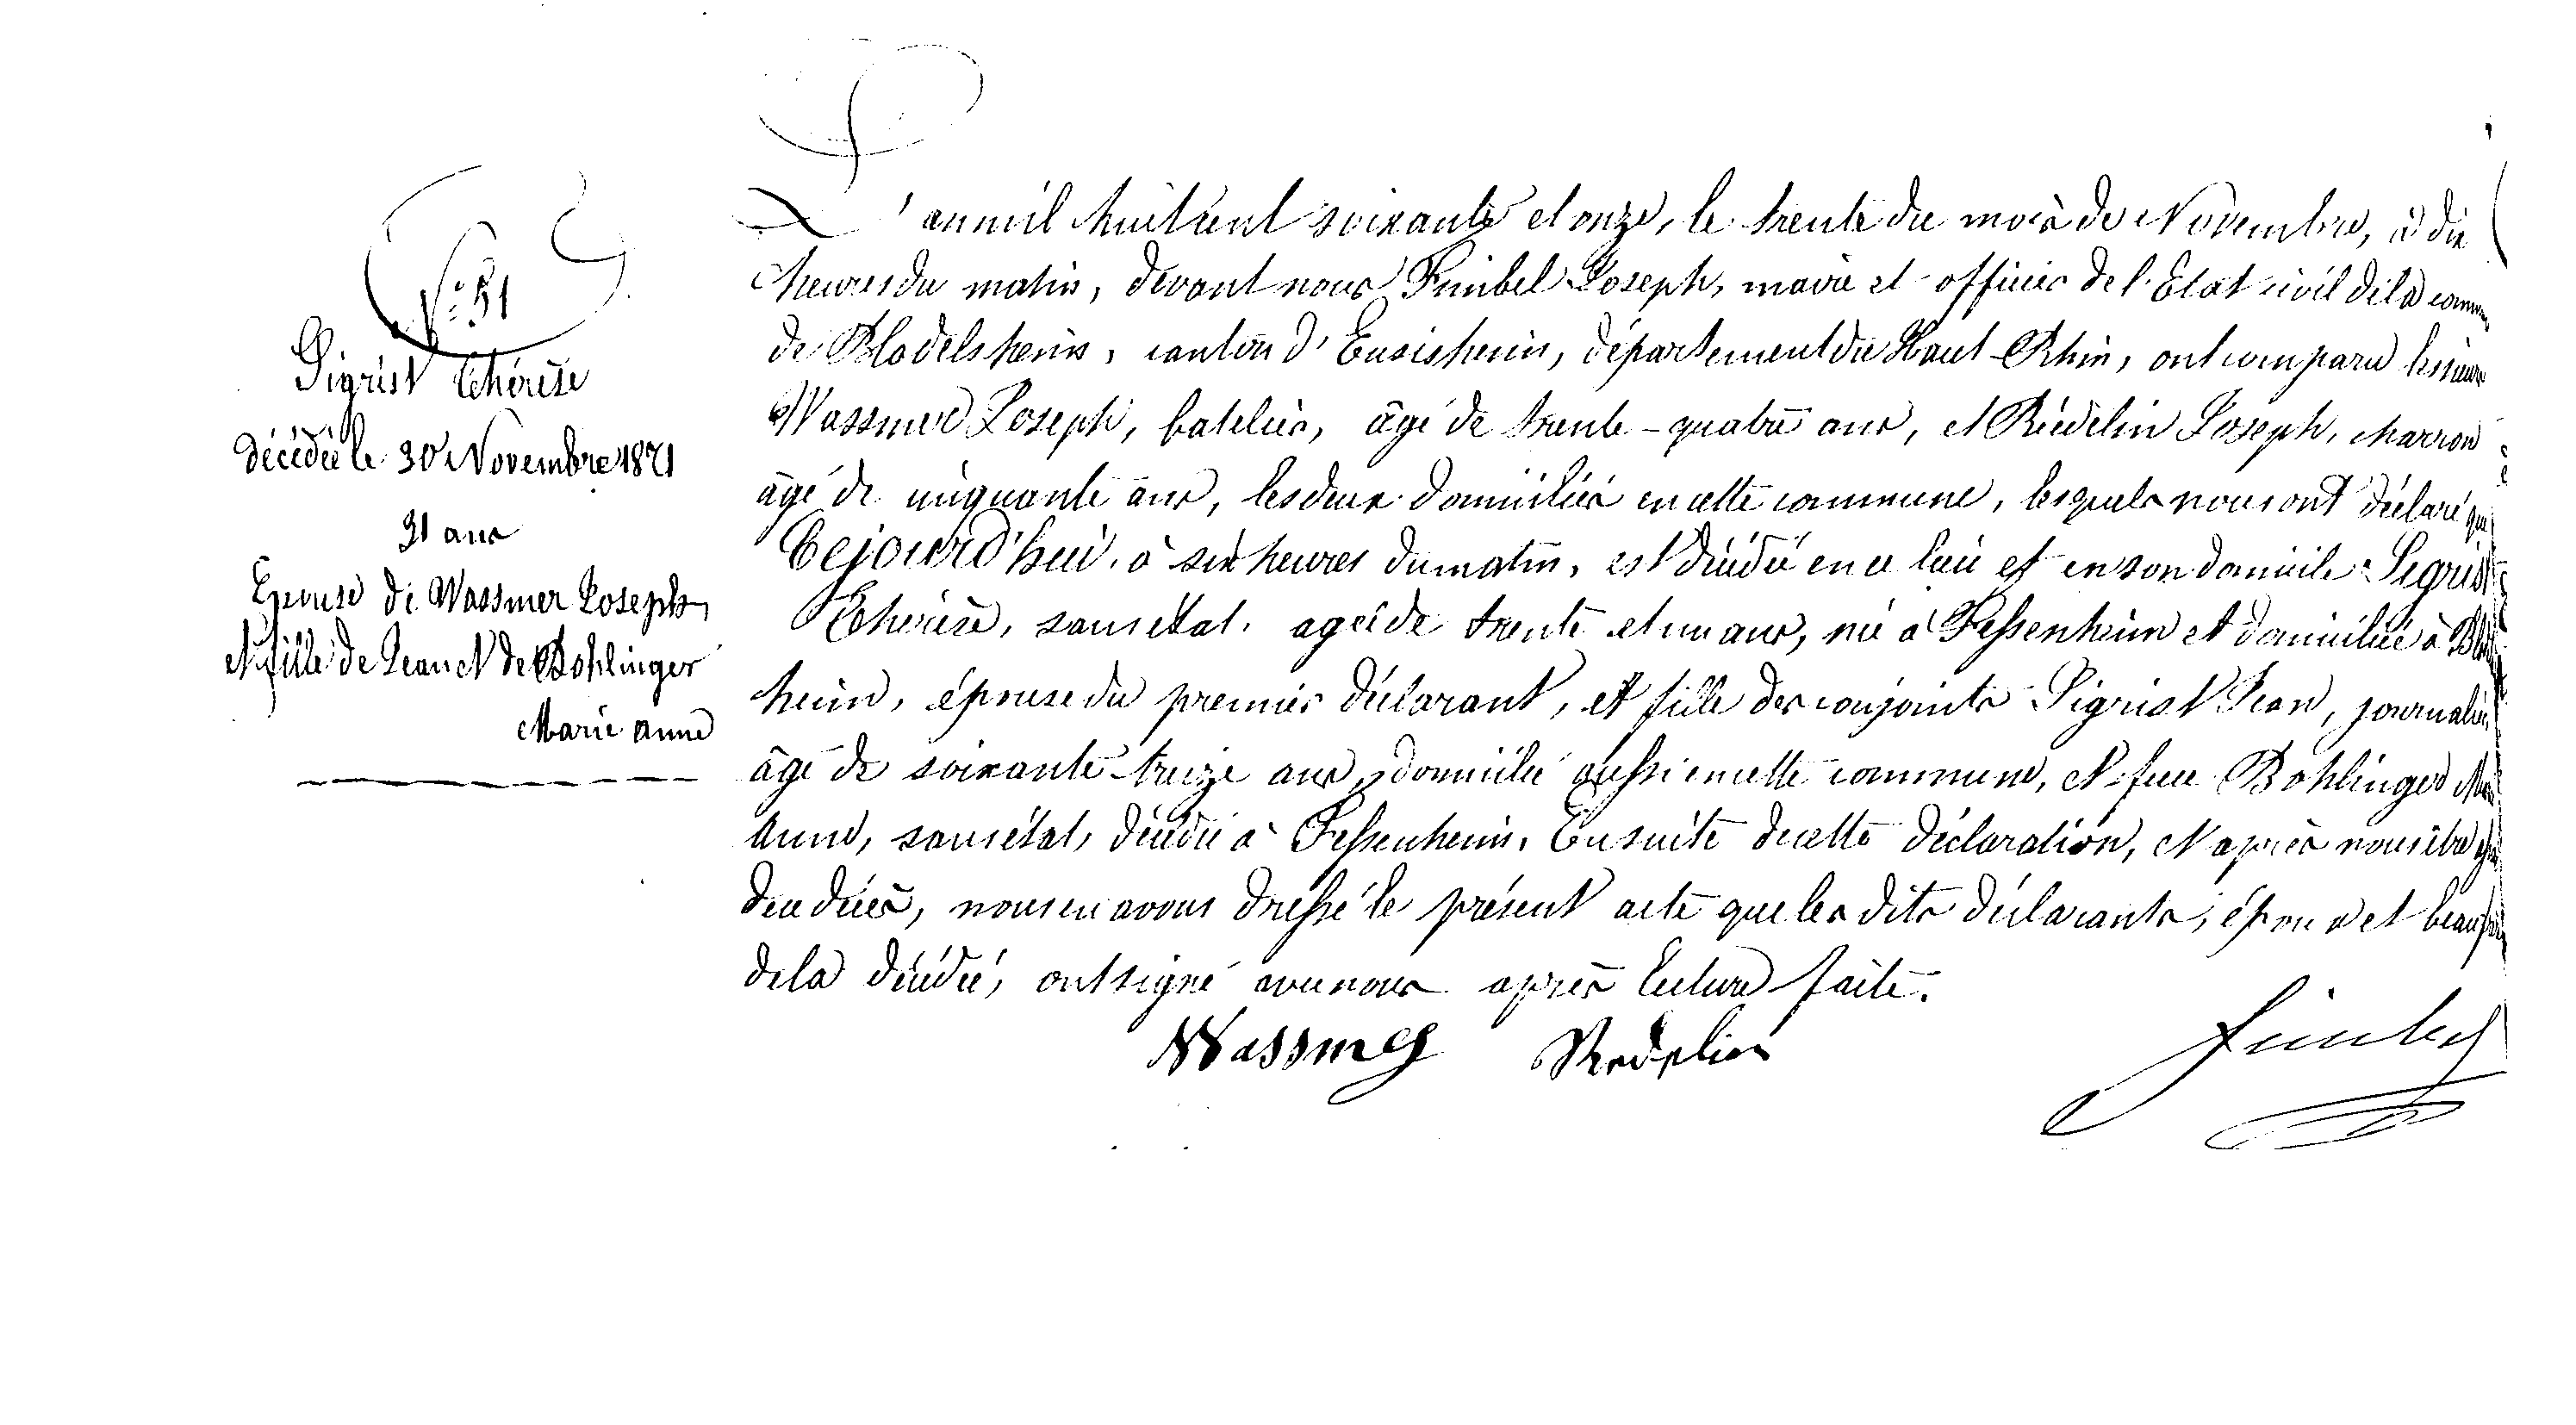 N° 51
Sigrist Thérèse
décédée le 30 Novembre 1871
31 ans
Epouse de Wassmer Joseph,
et fille de Jean et de Bohlinger
Marie Anne
L'an mil huit cent soixante et onze, le trente du mois de Novembre, à dix
heures du matin, devant nous Fimbel Joseph, maire et officier de l'Etat civil de la
de Blodelsheim, canton d'Ensisheim, département du Haut-Rhin, ont comparu les sieurs
Wassmer Joseph, batelier, âgé de trente-quatre ans, et Riedelin Joseph, charron
âgé de cinquante ans, les deux domiciliés en cette commune, lesquels nous ont déclaré que
Cejourd'hui, à six heures du matin, est décédée en ce lieu et en son domicile Sigrist
Thérèse, sans état, agée de trente et un ans, née à Fessenheim et domiciliée à
heim, épouse du premier déclarant, et fille des conjoints Sigrist Jean, journalier
âgé de soixante-treize ans, domicilié aussi en cette commune, et feue Bohlinger
Anne, sans état, décédée à Fessenheim. Ensuite de cette déclaration, et après nous être
du décès, nous en avons dressé le présent acte que les dits déclarants, époux et
de la décédée, ont signé avec nous après lecture faite.
Wassmer Riedelin Fimbel